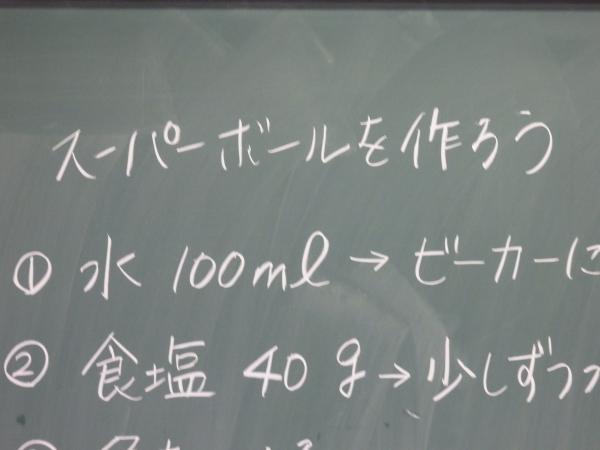 スーパーボールを作ろう
① 水 100ml → ビーカーに
② 食塩 40g → 少しずつ